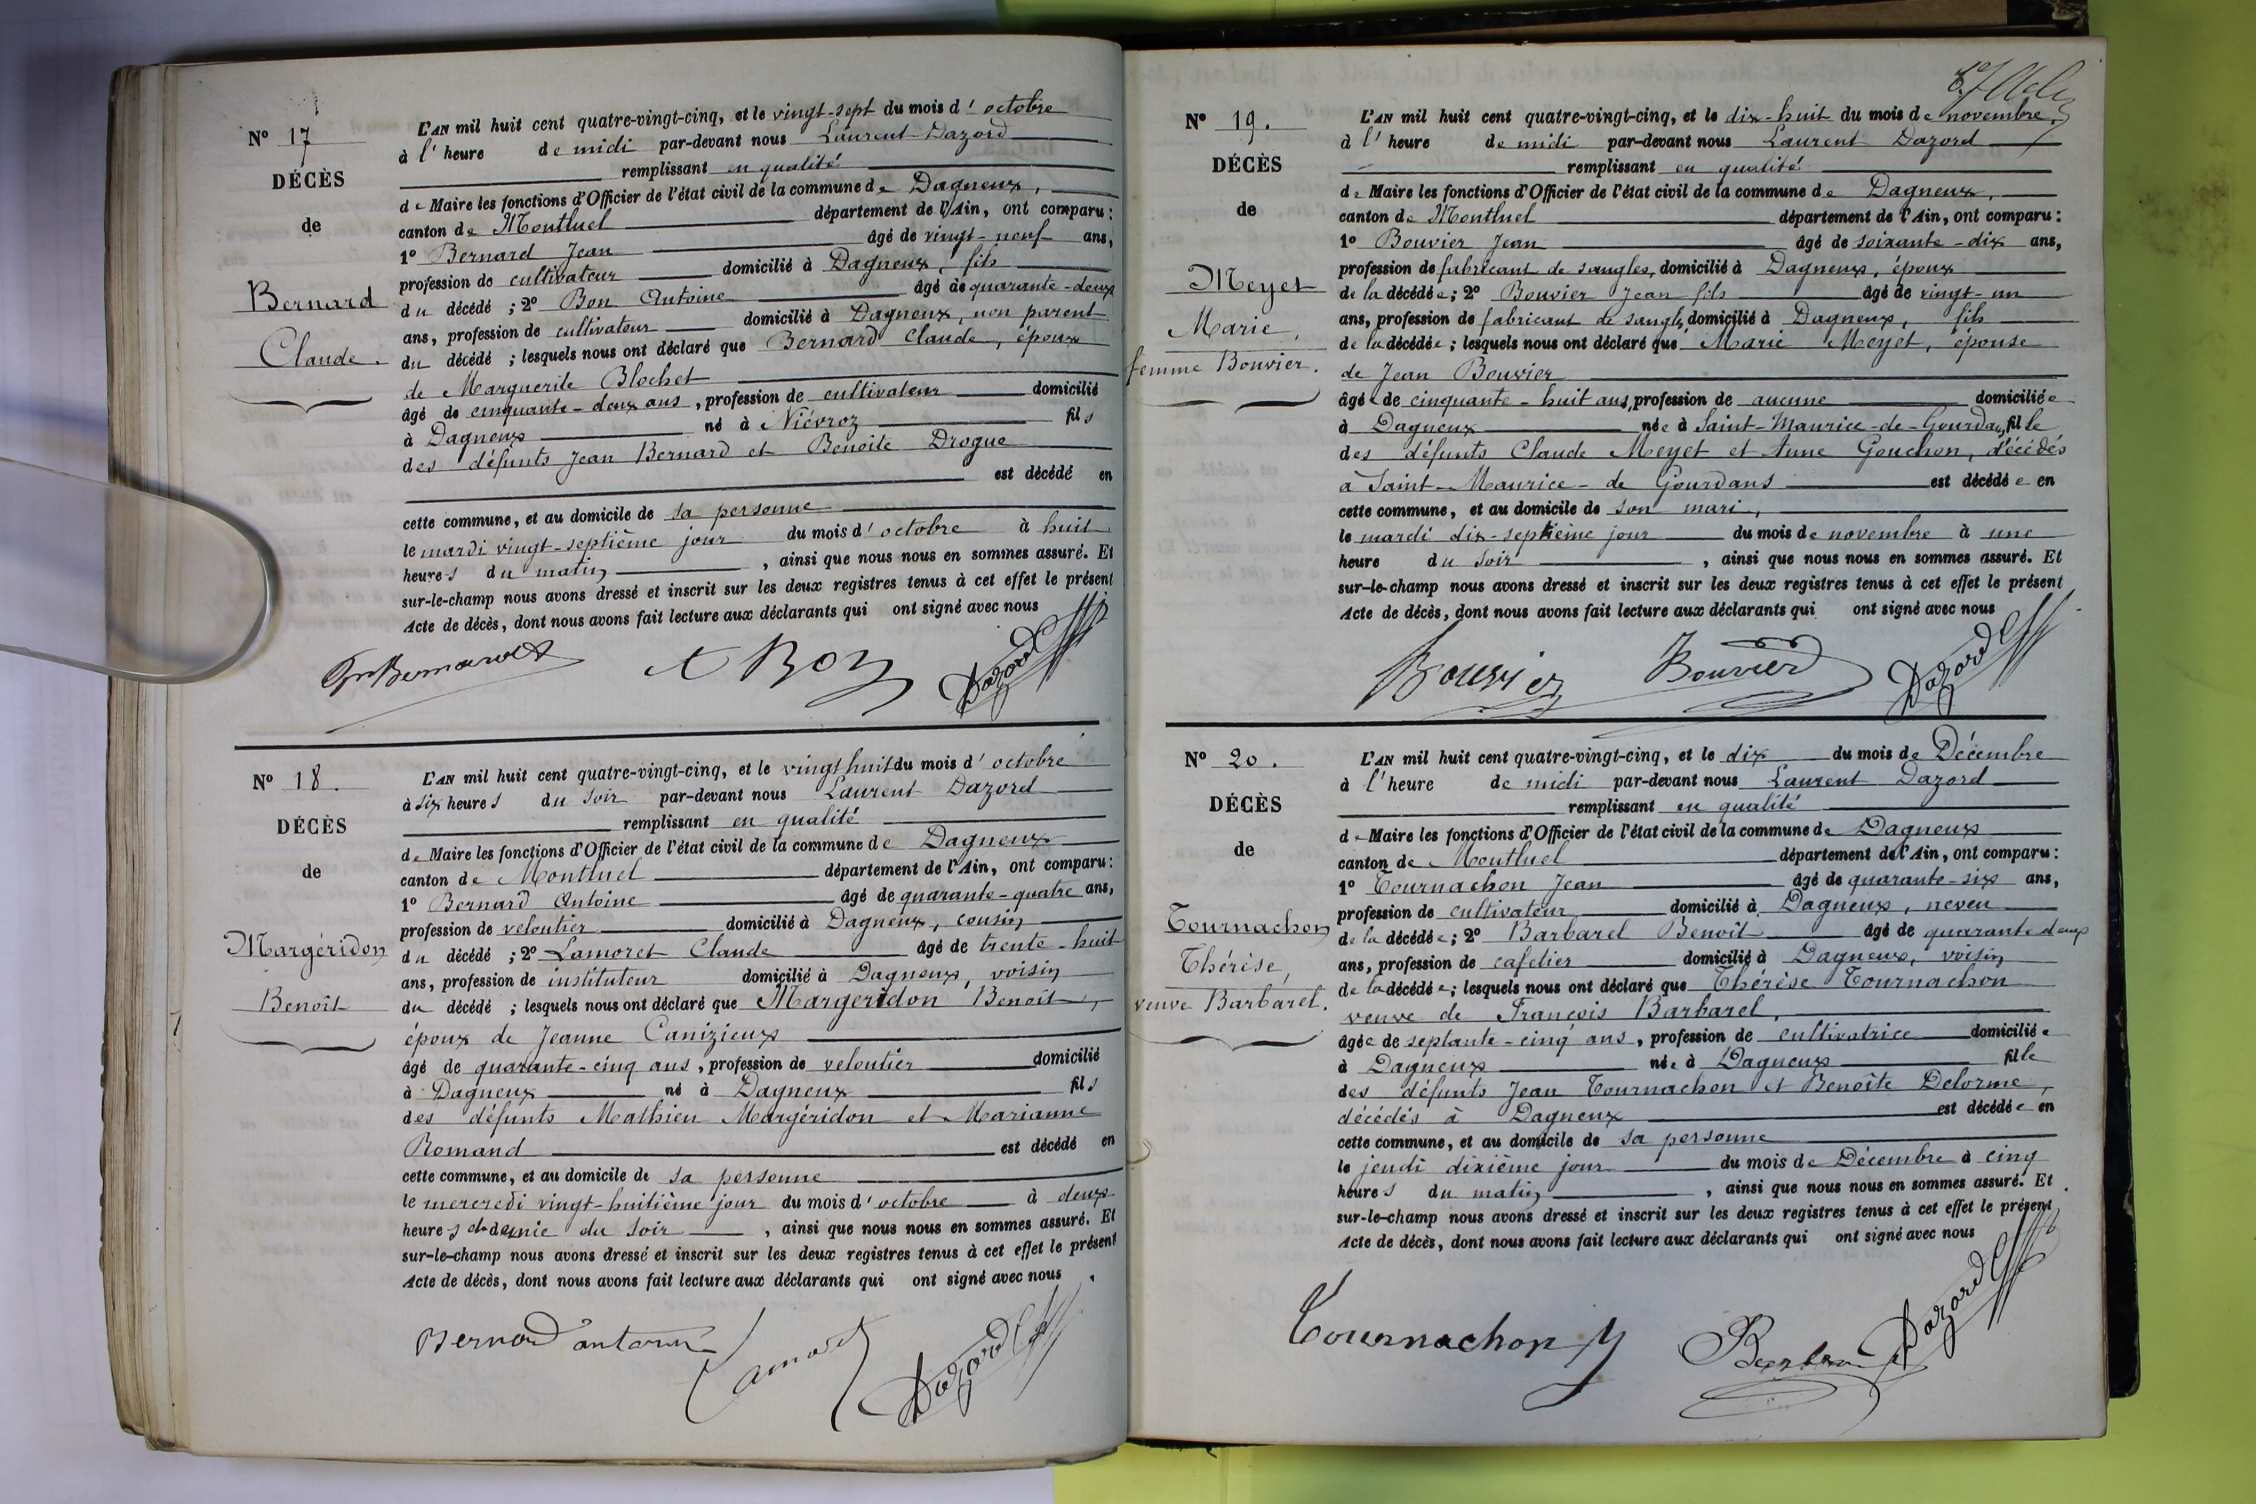 N° 17
DÉCÈS
de
Bernard
Claude.
L'AN mil huit cent quatre-vingt-cinq, et le vingt-sept du mois d'octobre
à l'heure de midi par-devant nous Laurent Dazord
remplissant en qualité
de Maire les fonctions d'Officier de l'état civil de la commune de Dagneux,
canton de Montluel département de l'Ain, ont comparu :
1° Bernard Jean âgé de vingt-neuf ans,
profession de cultivateur domicilié à Dagneux, fils
du décédé ; 2° Bon Antoine âgé de quarante-deux
ans, profession de cultivateur domicilié à Dagneux, non parent
du décédé ; lesquels nous ont déclaré que Bernard Claude, époux
de Marguerite Blochet
âgé de cinquante-deux ans, profession de cultivateur domicilié
à Dagneux né à Niévroz fils
des défunts Jean Bernard et Benoîte Drogue
est décédé en
cette commune, et au domicile de sa personne
le mardi vingt-septième jour du mois d'octobre à huit
heures du matin, ainsi que nous nous en sommes assuré. Et
sur-le-champ nous avons dressé et inscrit sur les deux registres tenus à cet effet le présent
Acte de décès, dont nous avons fait lecture aux déclarants qui ont signé avec nous
Bernard A Bon Dazord
N° 18.
DÉCÈS
de
Margéridon
Benoît
L'AN mil huit cent quatre-vingt-cinq, et le vingt huit du mois d'octobre
à six heures du soir par-devant nous Laurent Dazord
remplissant en qualité
de Maire les fonctions d'Officier de l'état civil de la commune de Dagneux
canton de Montluel département de l'Ain, ont comparu :
1° Bernard Antoine âgé de quarante-quatre ans,
profession de veloutier domicilié à Dagneux, cousin
du décédé ; 2° Lamoret Claude âgé de trente-huit
ans, profession de instituteur domicilié à Dagneux, voisin
du décédé ; lesquels nous ont déclaré que Margeridon Benoît,
époux de Jeanne Canizieux
âgé de quarante-cinq ans, profession de veloutier domicilié
à Dagneux né à Dagneux fils
des défunts Mathieu Margéridon et Marianne
Romand est décédé en
cette commune, et au domicile de sa personne
le mercredi vingt-huitième jour du mois d'octobre à deux
heures et demie du soir, ainsi que nous nous en sommes assuré. Et
sur-le-champ nous avons dressé et inscrit sur les deux registres tenus à cet effet le présent
Acte de décès, dont nous avons fait lecture aux déclarants qui ont signé avec nous.
Bernard antoine Lamoret Dazord
N° 19.
DÉCÈS
de
Meyet
Marie,
femme Bouvier.
L'AN mil huit cent quatre-vingt-cinq, et le dix-huit du mois de novembre,
à l'heure de midi par-devant nous Laurent Dazord
remplissant en qualité
de Maire les fonctions d'Officier de l'état civil de la commune de Dagneux,
canton de Montluel département de l'Ain, ont comparu :
1° Bouvier Jean âgé de soixante-dix ans,
profession de fabricant de sangles, domicilié à Dagneux, époux
de la décédée ; 2° Bouvier Jean fils âgé de vingt-un
ans, profession de fabricant de sangles domicilié à Dagneux, fils
de la décédée ; lesquels nous ont déclaré que Marie Meyet, épouse
de Jean Bouvier
âgée de cinquante-huit ans, profession de aucune domiciliée
à Dagneux née à Saint-Maurice-de-Gourdans, fille
des défunts Claude Meyet et Anne Gonchon, décédés
à Saint-Maurice-de Gourdans est décédée en
cette commune, et au domicile de son mari,
le mardi dix-septième jour du mois de novembre à une
heure du soir, ainsi que nous nous en sommes assuré. Et
sur-le-champ nous avons dressé et inscrit sur les deux registres tenus à cet effet le présent
Acte de décès, dont nous avons fait lecture aux déclarants qui ont signé avec nous
Bouvier J Bouvier Dazord
N° 20.
DÉCÈS
de
Tournachon
Thérèse,
veuve Barbarel.
L'AN mil huit cent quatre-vingt-cinq, et le dix du mois de Décembre
à l'heure de midi par-devant nous Laurent Dazord
remplissant en qualité
de Maire les fonctions d'Officier de l'état civil de la commune de Dagneux
canton de Montluel département de l'Ain, ont comparu :
1° Tournachon Jean âgé de quarante-six ans,
profession de cultivateur domicilié à Dagneux, neveu
de la décédée ; 2° Barbarel Benoît âgé de quarante deux
ans, profession de cafetier domicilié à Dagneux, voisin
de la décédée ; lesquels nous ont déclaré que Thérèse Tournachon
veuve de François Barbarel,
âgée de septante-cinq ans, profession de cultivatrice domiciliée
à Dagneux née à Dagneux fille
des défunts Jean Tournachon et Benoîte Delorme,
décédés à Dagneux est décédée en
cette commune, et au domicile de sa personne
le jeudi dixième jour du mois de Décembre à cinq
heures du matin, ainsi que nous nous en sommes assuré. Et
sur-le-champ nous avons dressé et inscrit sur les deux registres tenus à cet effet le présent
Acte de décès, dont nous avons fait lecture aux déclarants qui ont signé avec nous
Tournachon Dazord